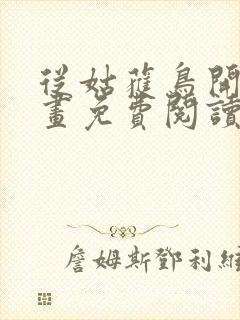 從姑蘿鳥開
畫免費閱讀
詹姆斯鄧利維